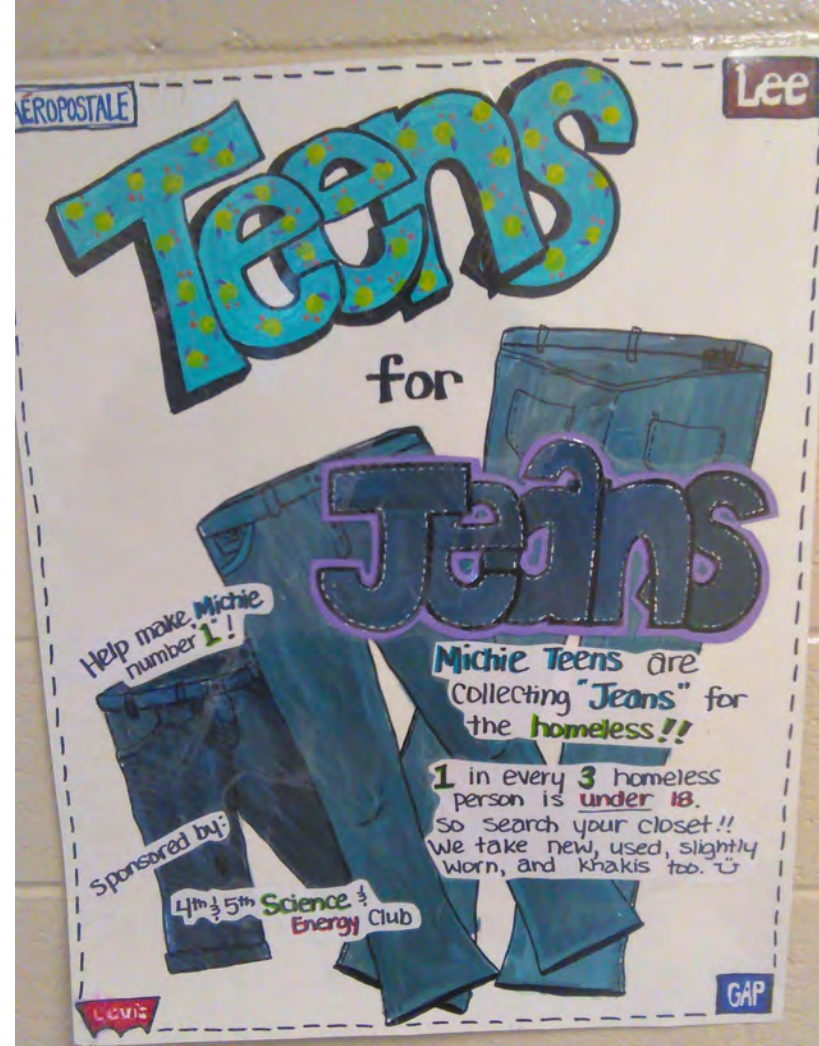 AÉROPOSTALE
Lee
Teens
for
Jeans
Help make Michie
number 1!
Michie Teens are
collecting "Jeans" for
the homeless!!
1 in every 3 homeless
person is under 18.
so search your closet!!
We take new, used, slightly
worn, and khakis too. ü
Sponsored by:
4th & 5th Science &
Energy Club
Levi's
GAP